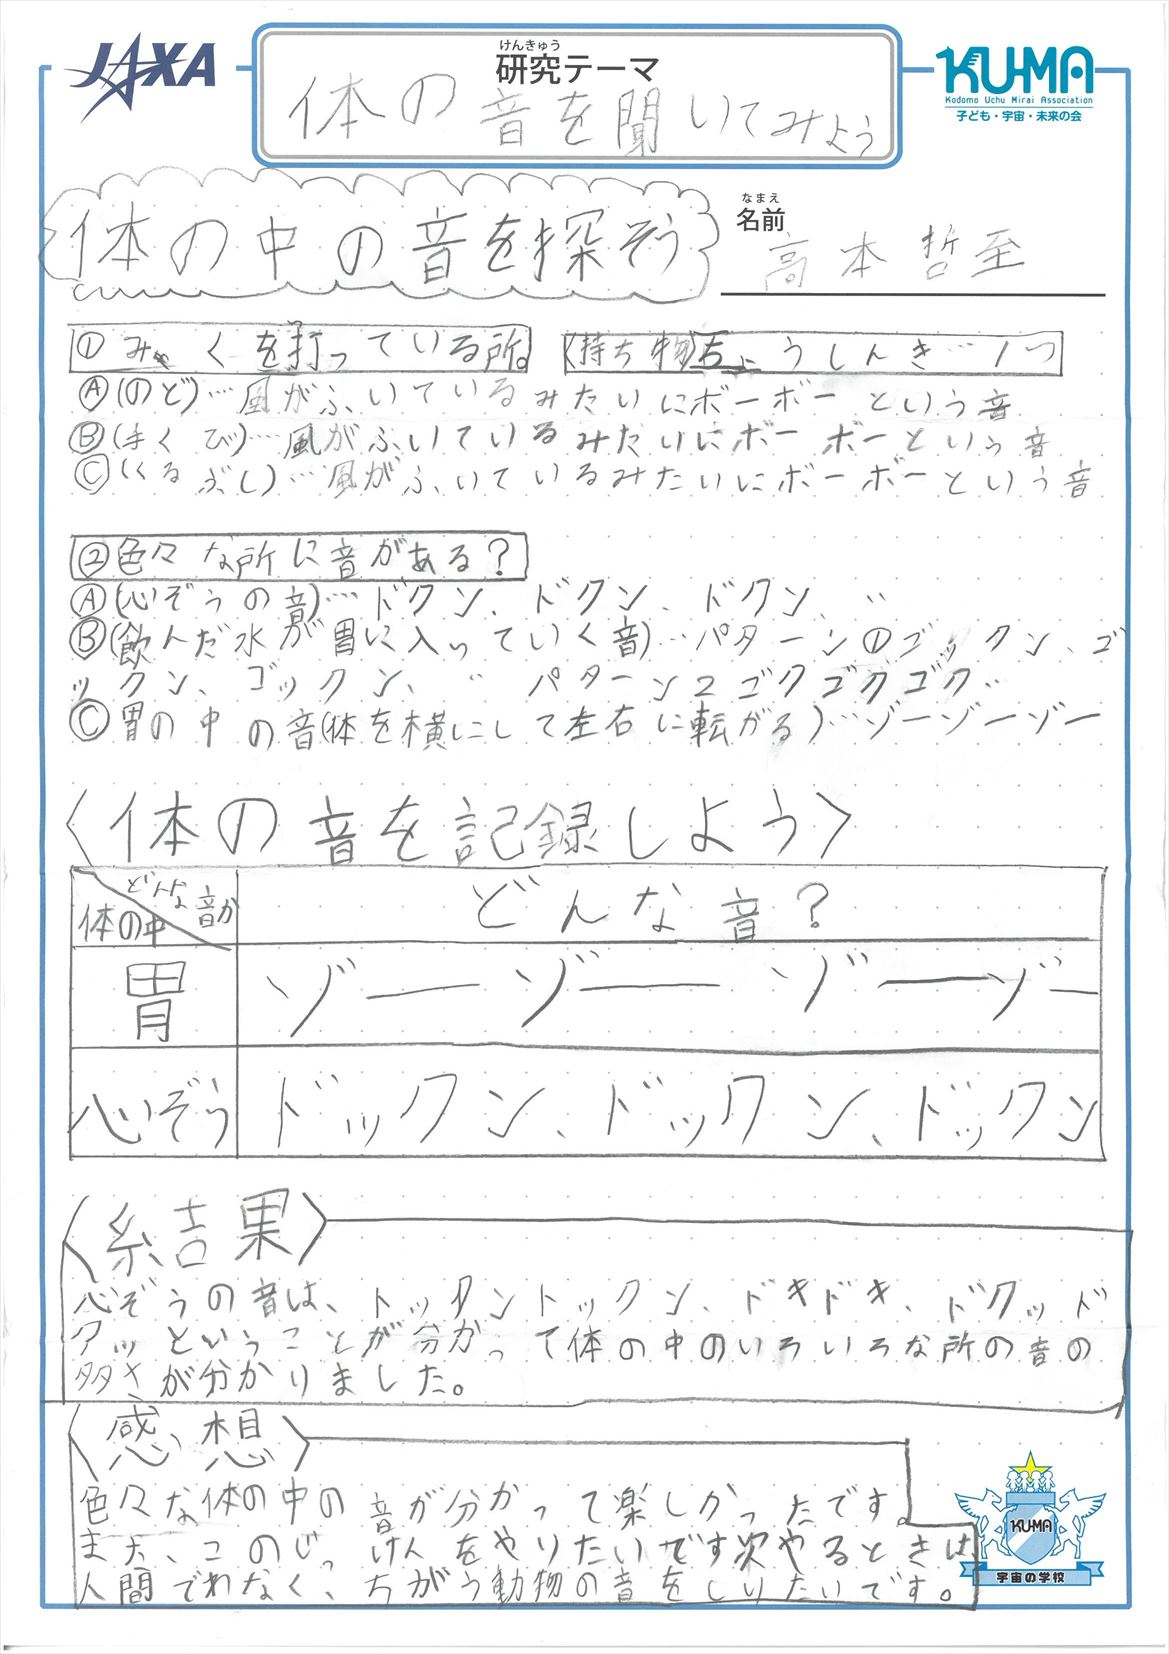 JAXA
けんきゅう
研究テーマ
体の音を聞いてみよう
KU-MA
Kodomo Uchu Mirai Association
子ども・宇宙・未来の会
体の中の音を探そう
なまえ
名前
高本哲至
①みゃくを打っている所。
(持ち物)ちょうしんき…1つ
Ⓐ(のど)…風がふいているみたいにボーボーという音
Ⓑ(手くび)…風がふいているみたいにボーボーという音
Ⓒ(くるぶし)…風がふいているみたいにボーボーという音
②色々な所に音がある?
Ⓐ(心ぞうの音)…ドクン、ドクン、ドクン…
Ⓑ(飲んだ水が胃に入っていく音)…パターン①ゴックン、ゴ
ックン、ゴックン、… パターン2ゴクゴクゴク…
Ⓒ胃の中の音(体を横にして左右に転がる)…ゾーゾーゾー
〈体の音を記録しよう〉
どんな音か
体の中
どんな音?
胃
ゾーゾーゾーゾー
心ぞう
ドックン、ドックン、ドックン
〈結果〉
心ぞうの音は、トックントックン、ドキドキ、ドクッド
クッということが分かって体の中のいろいろな所の音の
多さが分かりました。
〈感想〉
色々な体の中の音が分かって楽しかったです。
また、このじっけんをやりたいです次やるときは
人間でわなく、ちがう動物の音をしりたいです。
KU-MA
宇宙の学校